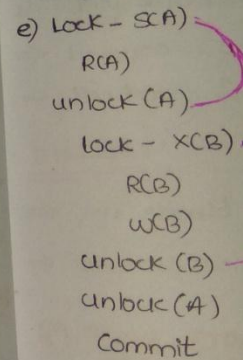 e) Lock - S(A)
R(A)
unlock (A)
lock - X(B)
R(B)
W(B)
unlock (B)
unlock (A)
Commit